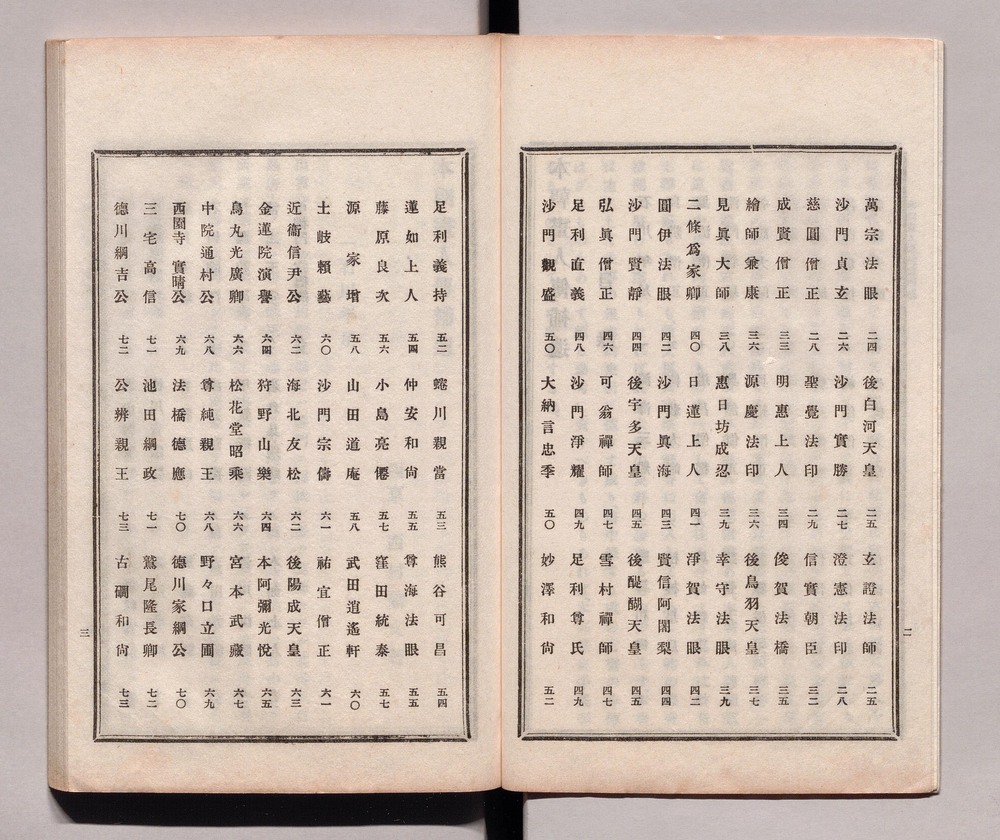 萬宗法眼 二四 後白河天皇 二五 玄證法師 二五
沙門貞玄 二六 沙門實勝 二七 澄憲法印 二八
慈圓僧正 二八 聖覺法印 二九 信實朝臣 三二
成賢僧正 三三 明惠上人 三四 俊賀法橋 三五
繪師兼康 三六 源慶法印 三六 後鳥羽天皇 三七
見眞大師 三八 惠日坊成忍 三九 幸守法眼 三九
二條爲家卿 四〇 日蓮上人 四一 淨賀法眼 四二
圓伊法眼 四二 沙門眞海 四三 賢信阿闍梨 四四
沙門賢靜 四四 後宇多天皇 四五 後醍醐天皇 四五
弘眞僧正 四六 可翁禪師 四七 雪村禪師 四七
足利直義 四八 沙門淨耀 四九 足利尊氏 四九
沙門觀盛 五〇 大納言忠季 五〇 妙澤和尙 五二
二
足利義持 五二 蜷川親當 五三 熊谷可昌 五四
蓮如上人 五四 仲安和尙 五五 尊海法眼 五五
藤原良次 五六 小島亮僊 五七 窪田統泰 五七
源家增 五八 山田道庵 五八 武田逍遙軒 六〇
土岐賴藝 六〇 沙門宗儔 六一 祐宜僧正 六一
近衞信尹公 六二 海北友松 六二 後陽成天皇 六三
金蓮院演譽 六四 狩野山樂 六四 本阿彌光悅 六五
烏丸光廣卿 六六 松花堂昭乘 六六 宮本武藏 六七
中院通村公 六八 尊純親王 六八 野々口立圃 六九
西園寺實晴公 六九 法橋德應 七〇 德川家綱公 七〇
三宅高信 七一 池田綱政 七一 鷲尾隆長卿 七二
德川綱吉公 七二 公辨親王 七三 古礀和尙 七三
三